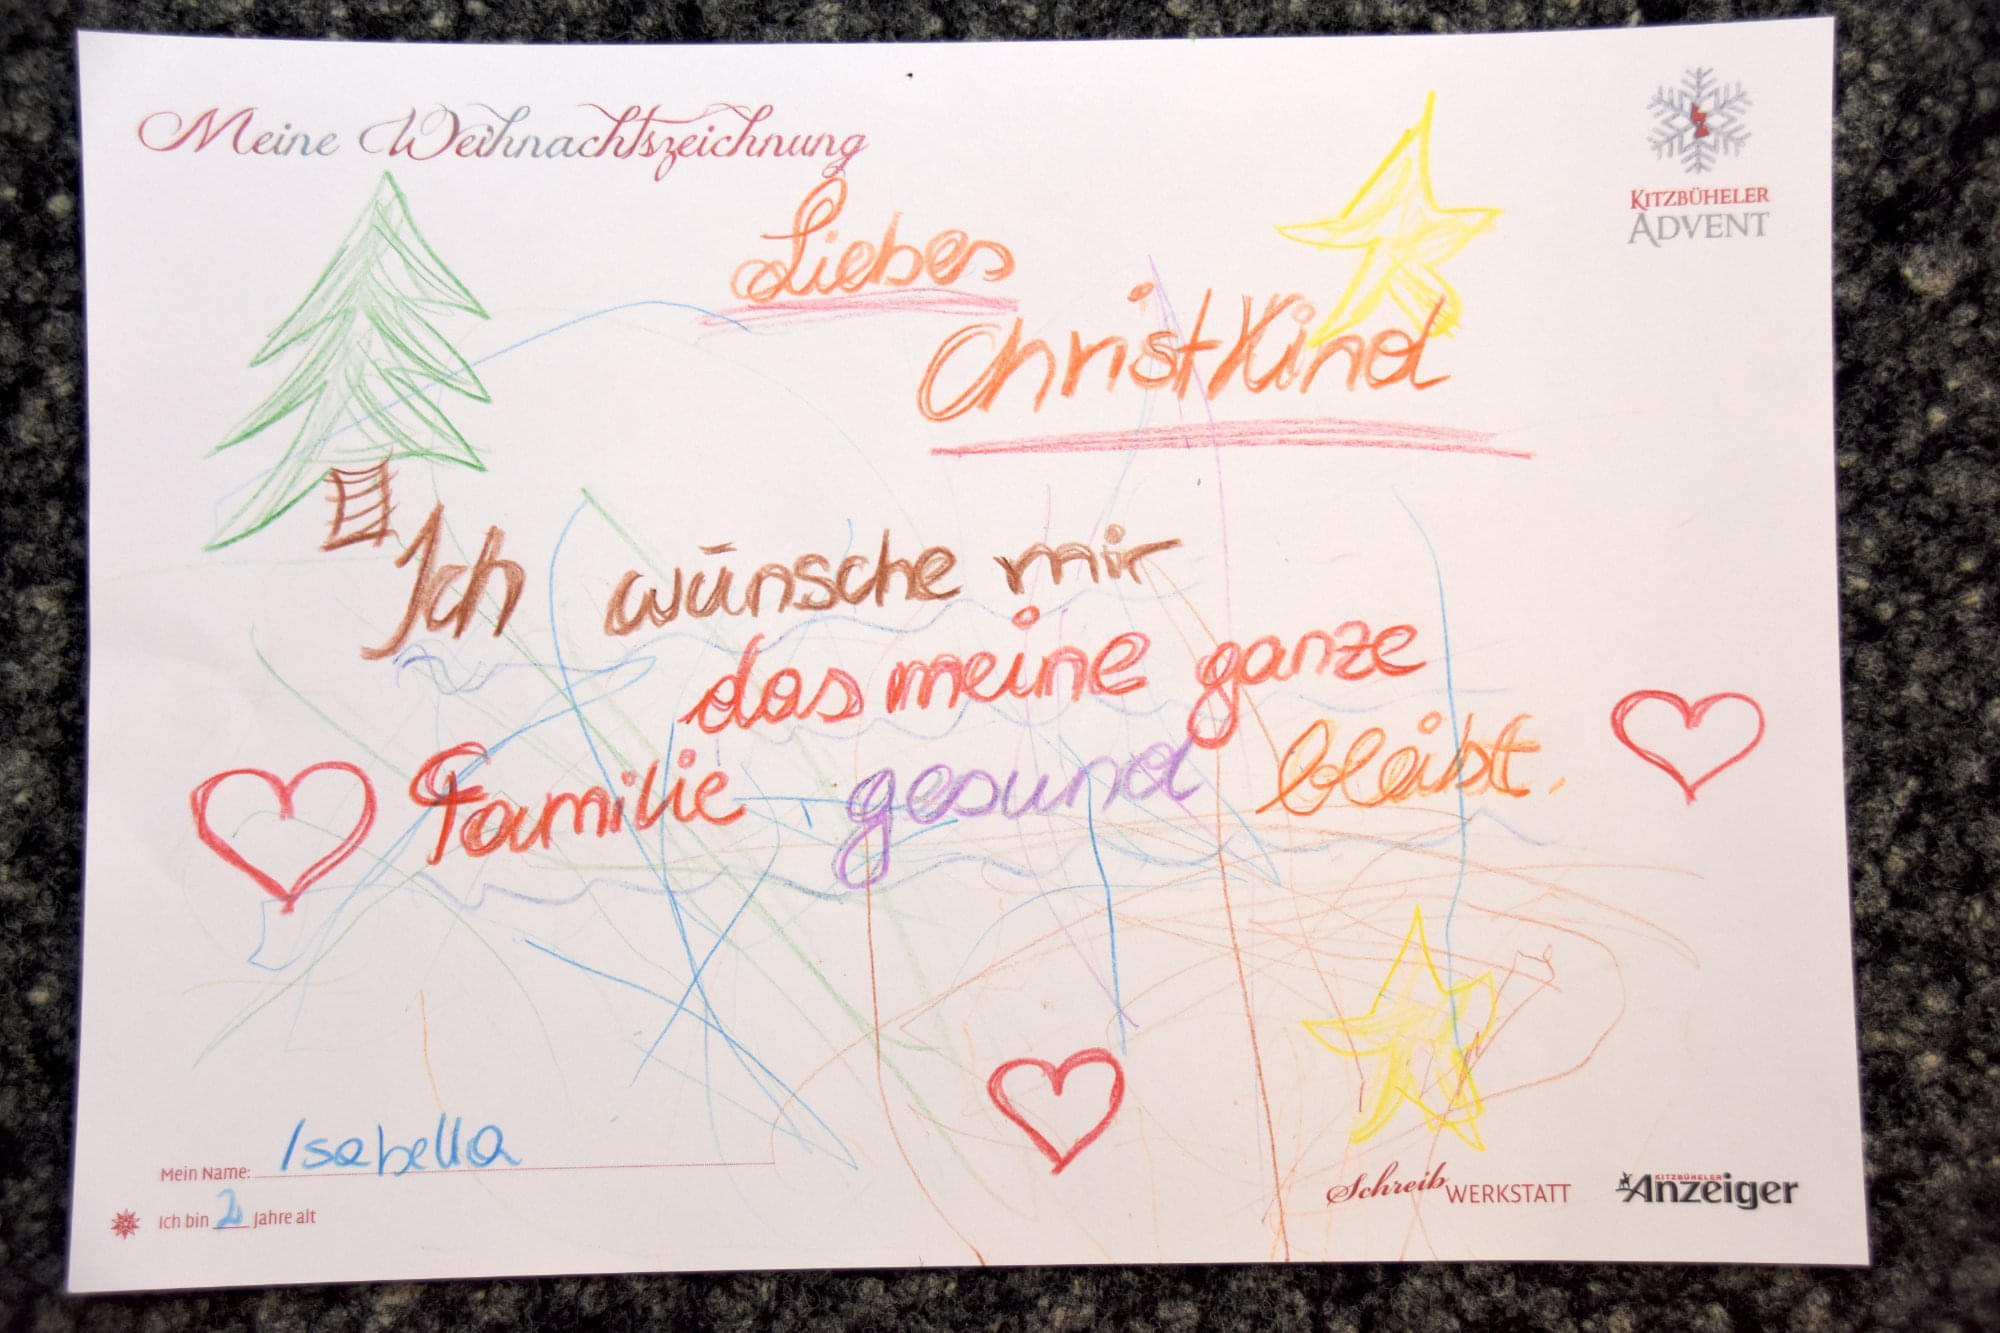 Meine Weihnachtszeichnung
KITZBÜHELER
ADVENT
Liebes
Christkind
Ich wünsche mir
das meine ganze
Familie gesund bleibt.
Mein Name: Isabella
Ich bin 2 Jahre alt
Schreib WERKSTATT
KITZBÜHELER
Anzeiger